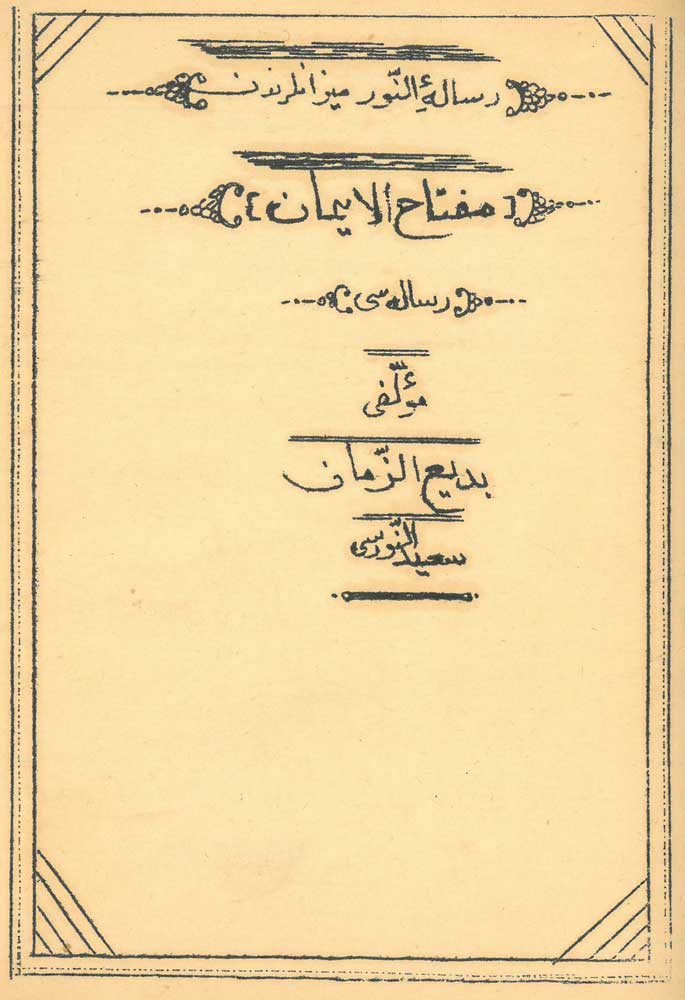 رسالۀ النّور ميزانلرندن
[مفتاح الايمان]
رساله سى
مؤلّفى
بديع الزّمان
سعيد النّورسى